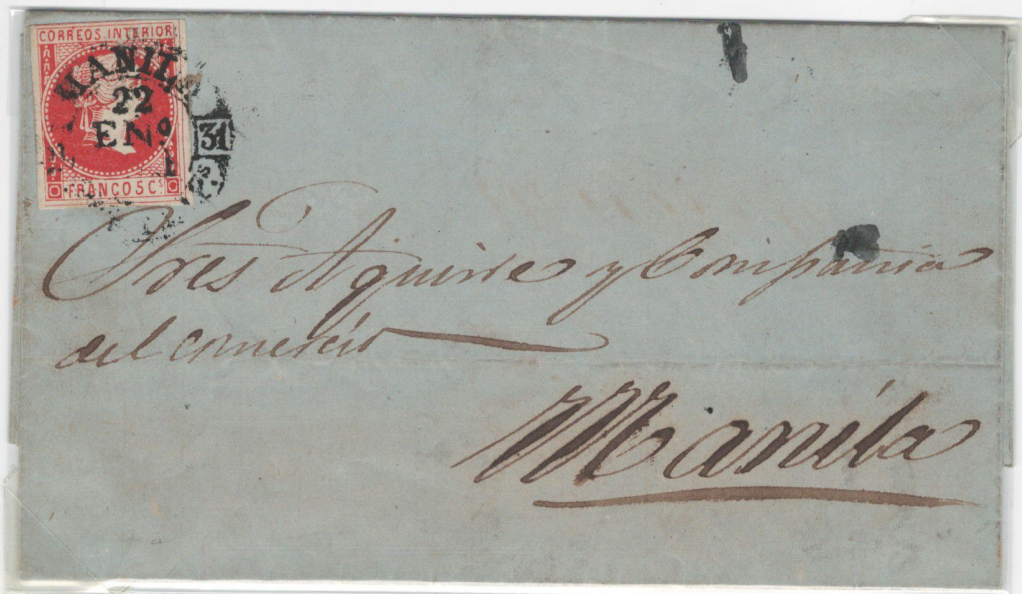 CORREOS INTERIOR
MANILA
22
ENº
31
FRANCO 5 Cs
Sres Aguirre y Compañia
del comercio
Manila